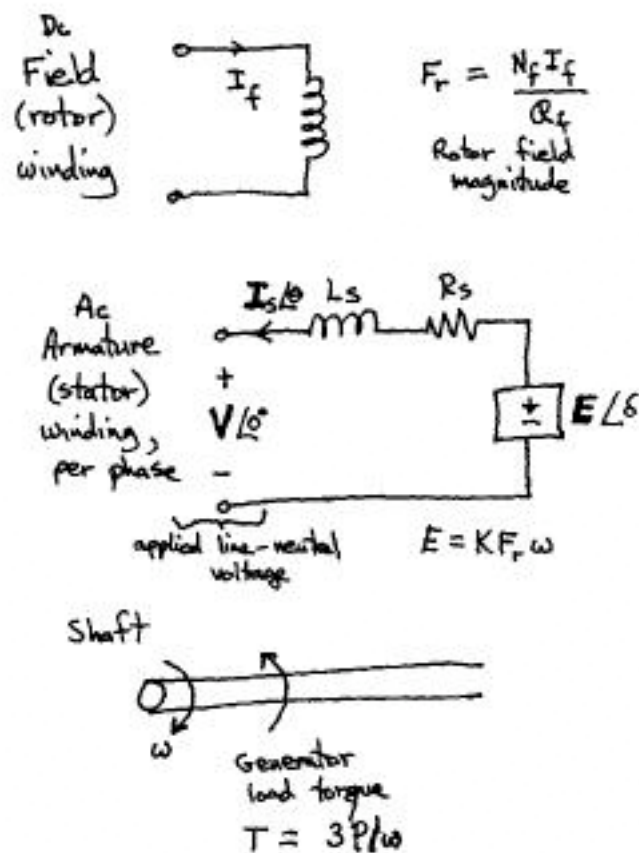 Dc
Field
(rotor)
winding
I_f
F_r = N_f I_f / R_f
Rotor field
magnitude
Ac
Armature
(stator)
winding,
per phase
I_s∠θ
L_s
R_s
+
V∠0°
-
+
-
E∠δ
applied line-neutral
voltage
E = K F_r ω
Shaft
ω
Generator
load torque
T = 3P/ω